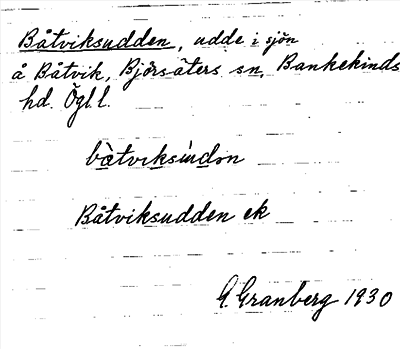 Båtviksudden, udde i sjön
å Båtvik, Björsäters sn, Bankekinds
hd. Ögl. l.
Båtviksudden ek
G. Granberg 1930